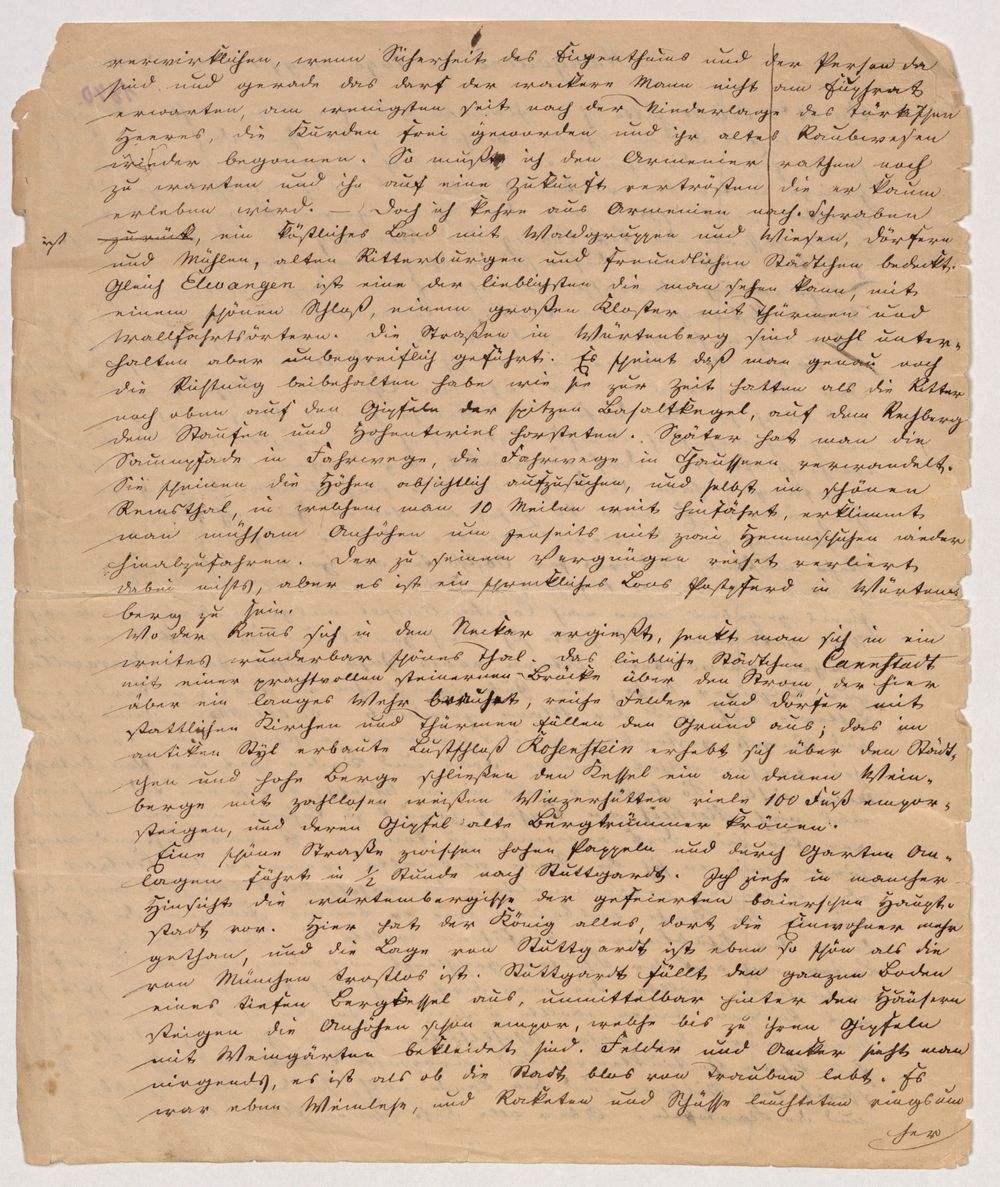 verwirklichen, wenn Sicherheit des Eigenthums und der Person da
sind und gerade das darf der wackere Mann nicht am Euphrat
erwarten, am wenigsten seit nach der Niederlage des türkischen
Heeres, die Kurden frei geworden und ihr altes Raubwesen
wieder begonnen. So mußte ich den Armenier rathen noch
zu warten und ihn auf eine Zukunft vertrösten die er kaum
erleben wird. — Doch ich kehre aus Armenien nach Schwaben
ist zurück, ein köstliches Land mit Waldgruppen und Wiesen, Dörfern
und Mühlen, alten Ritterburgen und freundlichen Städtchen bedeckt.
Gleich Elwangen ist eine der lieblichsten die man sehen kann, mit
einem schönen Schloß, einem großen Kloster mit Thürmen und
Wallfahrtsörtern. Die Straßen in Würtenberg sind wohl unter-
halten aber unbegreiflich geführt. Es scheint daß man genau noch
die Richtung beibehalten habe wie sie zur Zeit hatten als die Ritter
noch oben auf den Gipfeln der spitzen Basaltkegel, auf dem Rechberg
dem Staufen und Hohentwiel horsteten. Später hat man die
Saumpfade in Fahrwege, die Fahrwege in Chausseen verwandelt.
Sie scheinen die Höhen absichtlich aufzusuchen, und selbst im schönen
Remsthal, in welchem man 10 Meilen weit hinfährt, erklimmt
man mühsam Anhöhen um Jenseits mit zwei Hemmschuhen wieder
hinabzufahren. Der zu seinem Vergnügen reiset verliert
dabei nichts, aber es ist ein schreckliches Loos Postpferd in Würten-
berg zu sein.
Wo der Rems sich in den Neckar ergießt, senkt man sich in ein
weites wunderbar schönes Thal. Das liebliche Städtchen Cannstadt
mit einer prachtvollen steinernen Brücke über den Strom, der hier
über ein langes Wehr brauset, reiche Felder und Dörfer mit
stattlichen Kirchen und Thürmen füllen den Grund aus; das im
antiken Styl erbaute Lustschloß Rosenstein erhebt sich über den Städt-
chen und hohe Berge schließen den Kessel ein an denen Wein-
berge mit zahllosen weißen Winzerhütten viele 100 Fuß empor-
steigen, und deren Gipfel alte Burgtrümmer krönen.
Eine schöne Straße zwischen hohen Pappeln und durch Garten An-
lagen führt in 1/2 Stunde nach Stuttgardt. Ich ziehe in mancher
Hinsicht die würtembergische der gefeierten baierschen Haupt-
stadt vor. Hier hat der König alles, dort die Einwohner mehr
gethan, und die Lage von Stuttgardt ist eben so schön als die
von München trostlos ist. Stuttgardt füllt den ganzen Boden
eines tiefen Bergkessel aus, unmittelbar hinter den Häusern
steigen die Anhöhen schon empor, welche bis zu ihren Gipfeln
mit Weingärten bekleidet sind. Felder und Aecker sieht man
nirgends, es ist als ob die Stadt blos von Trauben lebt. Es
war eben Weinlese, und Raketen und Schüsse leuchteten rings um
her